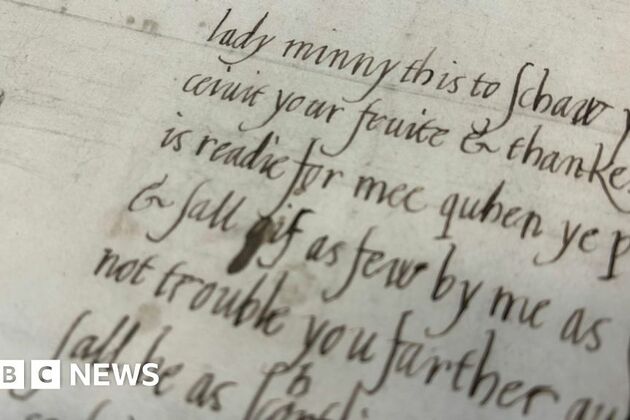 lady minny this to schaw
ceiuit your fruite & thanke
is readie for mee quhen ye p
& sall gif as few by me as
not trouble you farther qu
sall be as
BBC NEWS